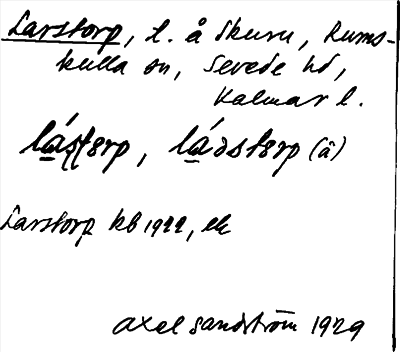 Larstorp, l. å Skuru, Rums-
kulla sn, Sevede hd,
Kalmar l.
lástorp, láɔstorp (â)
Larstorp kb 1922, ek
Axel Sandström 1929